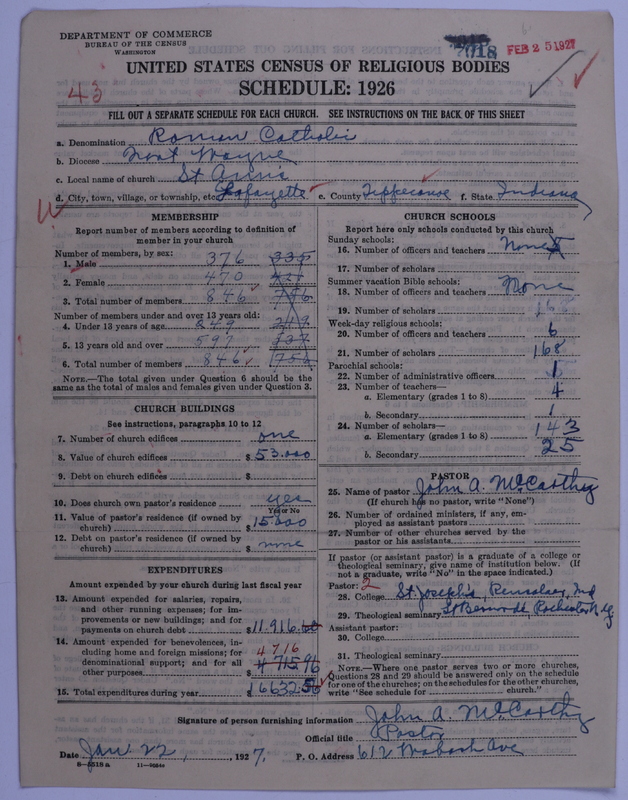 DEPARTMENT OF COMMERCE
BUREAU OF THE CENSUS
WASHINGTON
7018
FEB 25 1927
UNITED STATES CENSUS OF RELIGIOUS BODIES
SCHEDULE: 1926
43
FILL OUT A SEPARATE SCHEDULE FOR EACH CHURCH. SEE INSTRUCTIONS ON THE BACK OF THIS SHEET
a. Denomination Roman Catholic
b. Diocese Fort Wayne
c. Local name of church St Anns
d. City, town, village, or township, etc. Lafayette e. County Tippecanoe f. State Indiana
MEMBERSHIP
Report number of members according to definition of member in your church
Number of members, by sex:
1. Male 376 335
2. Female 470 421
3. Total number of members 846 756
Number of members under and over 13 years old:
4. Under 13 years of age 249 219
5. 13 years old and over 597 537
6. Total number of members 846 756
NOTE.—The total given under Question 6 should be the same as the total of males and females given under Question 3.
CHURCH BUILDINGS
See instructions, paragraphs 10 to 12
7. Number of church edifices one
8. Value of church edifices $ 53.000
9. Debt on church edifices $
10. Does church own pastor's residence yes
Yes or No
11. Value of pastor's residence (if owned by church) $ 15000
12. Debt on pastor's residence (if owned by church) $ none
EXPENDITURES
Amount expended by your church during last fiscal year
13. Amount expended for salaries, repairs, and other running expenses; for improvements or new buildings; and for payments on church debt $ 11.916.60
14. Amount expended for benevolences, including home and foreign missions; for denominational support; and for all other purposes $ 4715 96
4716
15. Total expenditures during year $ 16632.56
CHURCH SCHOOLS
Report here only schools conducted by this church
Sunday schools:
16. Number of officers and teachers None
17. Number of scholars
Summer vacation Bible schools:
18. Number of officers and teachers None
19. Number of scholars 168
Week-day religious schools:
20. Number of officers and teachers 6
21. Number of scholars 168
Parochial schools:
22. Number of administrative officers 1
23. Number of teachers—
a. Elementary (grades 1 to 8) 4
b. Secondary 1
24. Number of scholars—
a. Elementary (grades 1 to 8) 143
b. Secondary 25
PASTOR
25. Name of pastor John A. McCarthy
(If church has no pastor, write "None")
26. Number of ordained ministers, if any, employed as assistant pastors
27. Number of other churches served by the pastor or his assistants
If pastor (or assistant pastor) is a graduate of a college or theological seminary, give name of institution below. (If not a graduate, write "No" in the space indicated.)
Pastor: 2
28. College St Joseph's, Rensselaer, Ind
29. Theological seminary St Bernard's, Rochester N.Y.
Assistant pastor:
30. College
31. Theological seminary
NOTE.—Where one pastor serves two or more churches, Questions 28 and 29 should be answered only on the schedule for one of the churches; on the schedules for the other churches, write "See schedule for ______ church."
Signature of person furnishing information John A. McCarthy
Official title Pastor
Date Jan 22, 1927. P. O. Address 612 Wabash Ave
8—5518a 11—9054a